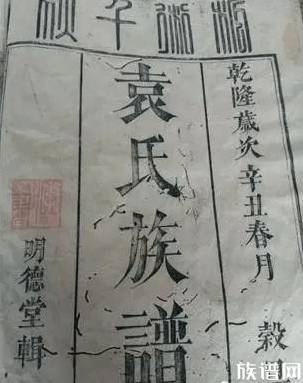 派衍千秋
乾隆歲次辛丑春月 穀
袁氏族譜
明德堂輯
族谱网